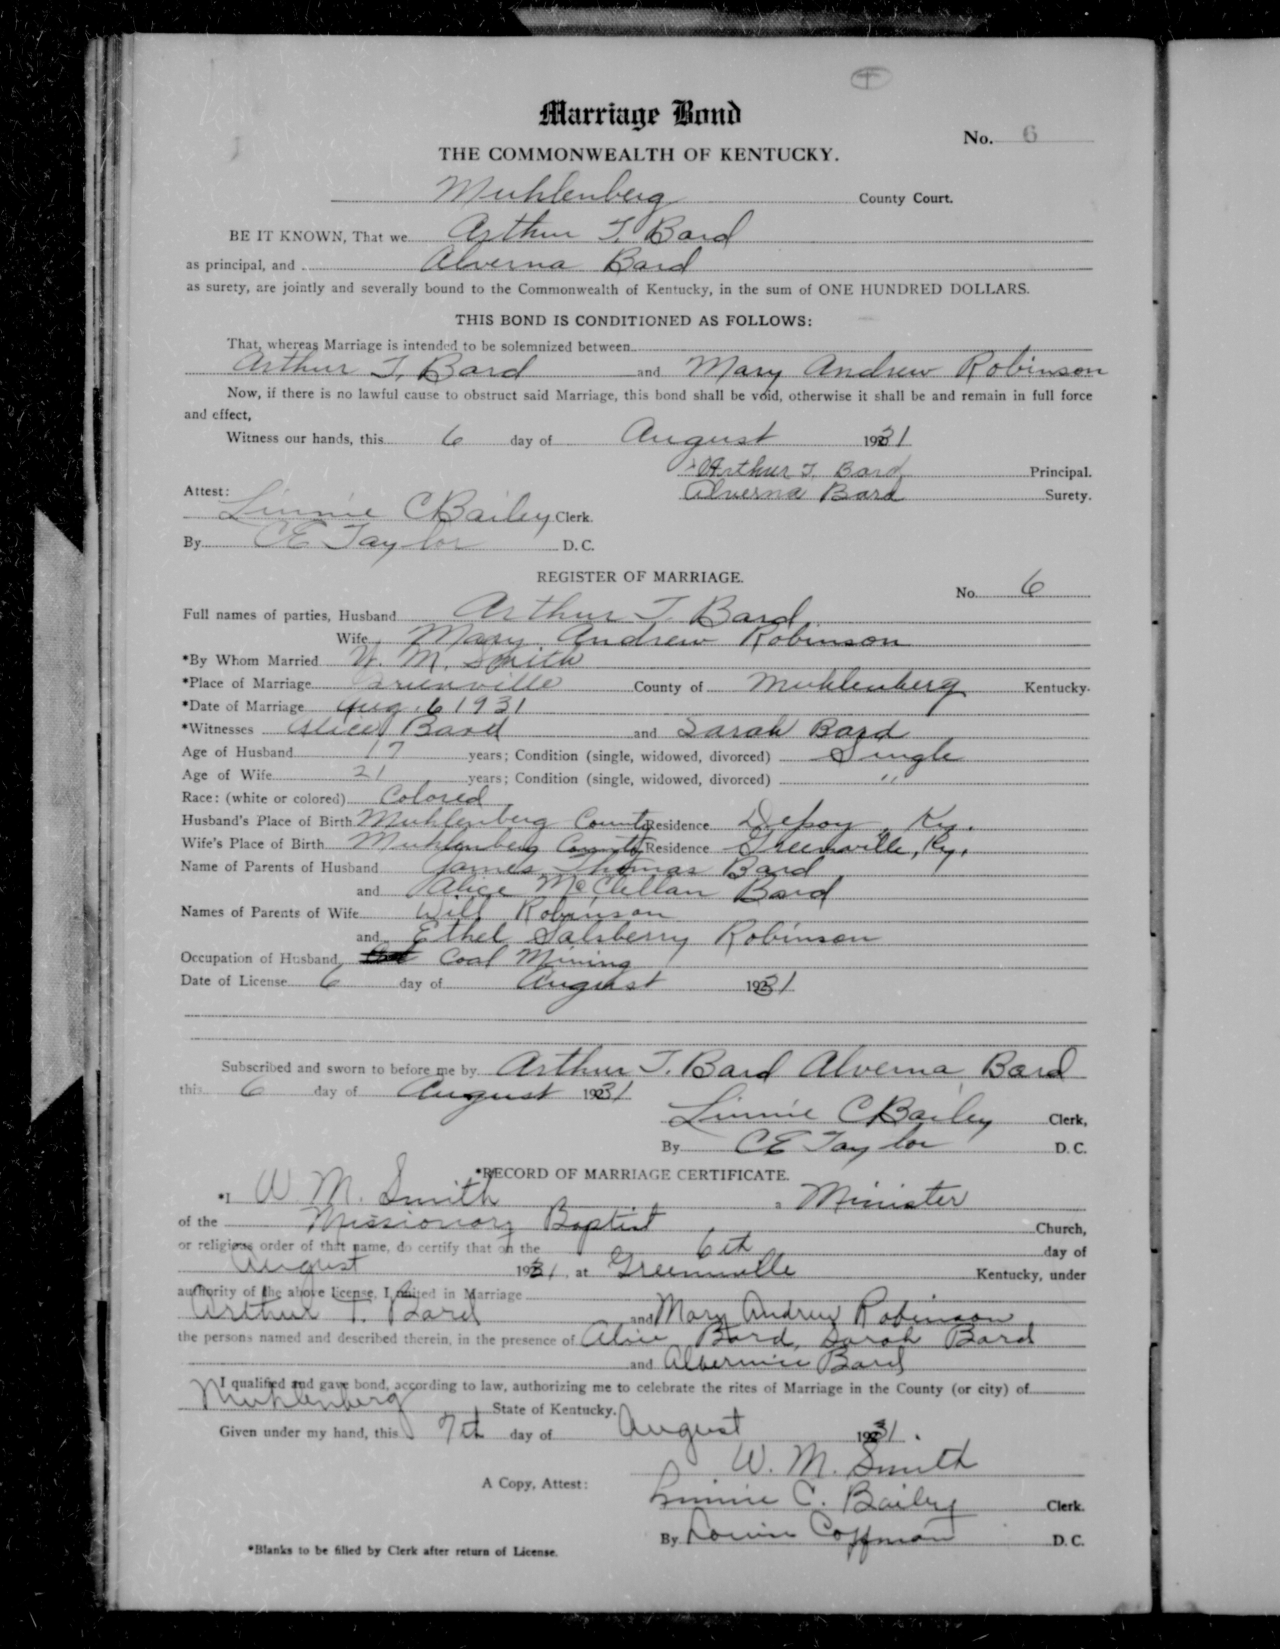 Marriage Bond
No. 6
THE COMMONWEALTH OF KENTUCKY.
Muhlenberg County Court.
BE IT KNOWN, That we Arthur T. Bard
as principal, and Alverna Bard
as surety, are jointly and severally bound to the Commonwealth of Kentucky, in the sum of ONE HUNDRED DOLLARS.
THIS BOND IS CONDITIONED AS FOLLOWS:
That, whereas Marriage is intended to be solemnized between
Arthur T. Bard and Mary Andrew Robinson
Now, if there is no lawful cause to obstruct said Marriage, this bond shall be void, otherwise it shall be and remain in full force
and effect,
Witness our hands, this 6 day of August 1931
Arthur T. Bard Principal.
Attest: Alverna Bard Surety.
Linnie C Bailey Clerk.
By C E Taylor D. C.
REGISTER OF MARRIAGE.
No. 6
Full names of parties, Husband Arthur T. Bard
Wife Mary Andrew Robinson
*By Whom Married W. M. Smith
*Place of Marriage Greenville County of Muhlenberg Kentucky.
*Date of Marriage Aug. 6 1931
*Witnesses Alice Bard and Sarah Bard
Age of Husband 17 years; Condition (single, widowed, divorced) Single
Age of Wife 21 years; Condition (single, widowed, divorced) "
Race: (white or colored) Colored
Husband's Place of Birth Muhlenberg County Residence Depoy, Ky.
Wife's Place of Birth Muhlenberg County Residence Greenville, Ky.
Name of Parents of Husband James Thomas Bard
and Alice McClellan Bard
Names of Parents of Wife Will Robinson
and Ethel Salsberry Robinson
Occupation of Husband Coal Mining
Date of License 6 day of August 1931
Subscribed and sworn to before me by Arthur T. Bard Alverna Bard
this 6 day of August 1931
Linnie C Bailey Clerk,
By C E Taylor D. C.
*RECORD OF MARRIAGE CERTIFICATE.
*I W. M. Smith a Minister
of the Missionary Baptist Church,
or religious order of that name, do certify that on the 6th day of
August 1931, at Greenville Kentucky, under
authority of the above license, I united in Marriage
Arthur T. Bard and Mary Andrew Robinson
the persons named and described therein, in the presence of Alice Bard, Sarah Bard
and Bard
I qualified and gave bond, according to law, authorizing me to celebrate the rites of Marriage in the County (or city) of
Muhlenberg State of Kentucky.
Given under my hand, this 7th day of August 1931.
W. M. Smith
A Copy, Attest:
Linnie C. Bailey Clerk.
By Coffman D. C.
*Blanks to be filled by Clerk after return of License.